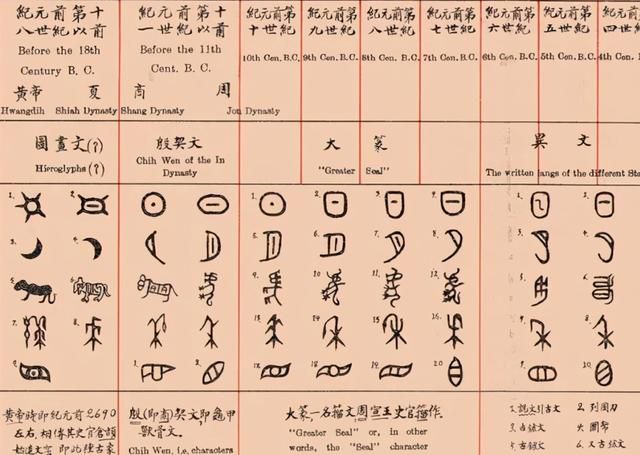 紀元前第十
八世紀以前
Before the 18th
Century B. C.
黃帝 夏
Hwangdih Shiah Dynasty
紀元前第十
一世紀以前
Before the 11th
Cent. B.C.
商 周
Shang Dynasty Jou Dynasty
紀元前第
十世紀
10th Cen. B.C.
紀元前第
九世紀
9th Cen. B.C.
紀元前第
八世紀
8th Cen. B.C.
紀元前第
七世紀
7th Cen. B.C.
紀元前第
六世紀
6th Cen. B.C.
紀元前第
五世紀
5th Cen. B.C.
紀元前第
四世紀
4th Cen.
圖畫文(?)
Hieroglyphs (?)
殷契文
Chih Wen of the In
Dynasty
大篆
"Greater Seal"
異文
The written langs of the different
1. 2.
3. 4.
5. 6.
7. 8.
9.
1. 2.
1. 2. 3. 4.
5. 6. 7. 8.
9. 10. 11. 12.
13. 14. 15. 16.
17. 18. 19. 20
1. 2.
3. 4.
5. 6.
7. 8.
9. 10.
黃帝時即紀元前2690
左右,相傳其史官倉頡
始造文字,即此種古象
殷(即商)契文,即龜甲
獸骨文.
Chih Wen, i.e. characters
大篆,一名籀文,周宣王史官籀作.
"Greater Seal" or, in other
words, the "Seal" character
1. 說文引古文 2. 列國刀
3. 古鉢文
5. 古鉢文 6. 又古鉢文